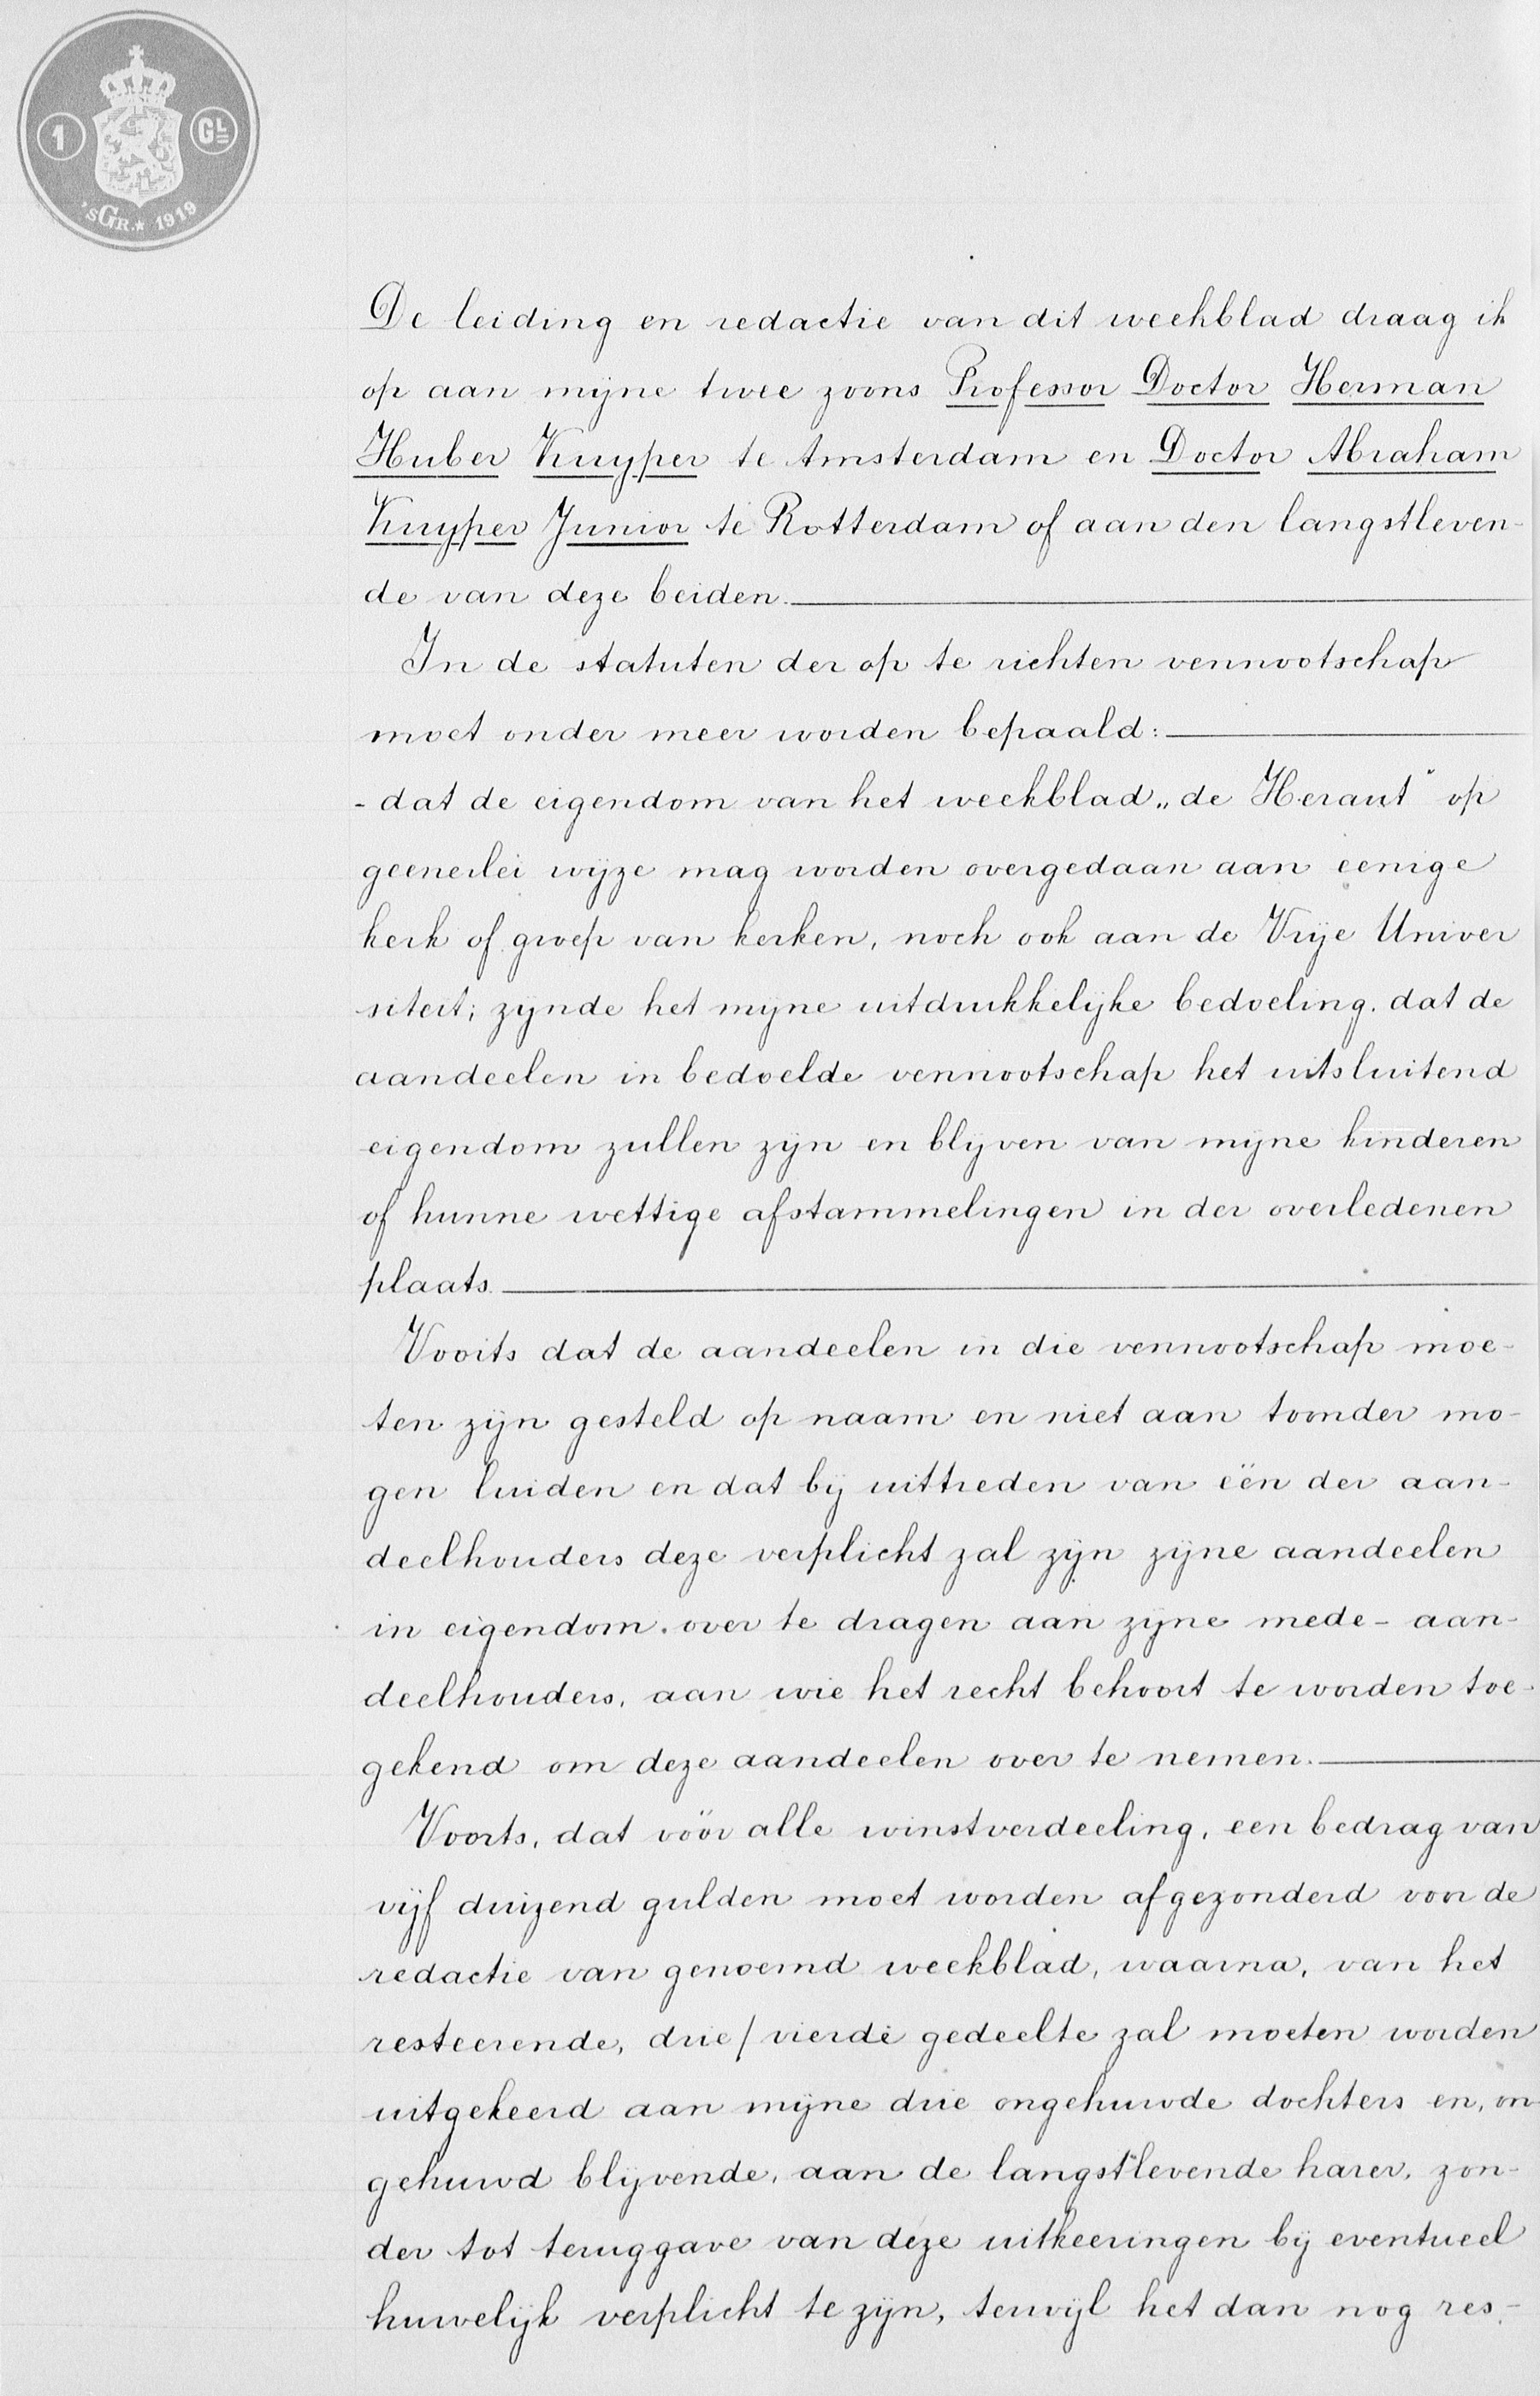 1 GL
'sGR.★ 1919
De leiding en redactie van dit weekblad draag ik
op aan mijne twee zoons Professor Doctor Herman
Huber Kuyper te Amsterdam en Doctor Abraham
Kuyper Junior te Rotterdam of aan den langstleven-
de van deze beiden.
In de statuten der op te richten vennootschap
moet onder meer worden bepaald:
- dat de eigendom van het weekblad „de Heraut" op
geenerlei wijze mag worden overgedaan aan eenige
kerk of groep van kerken, noch ook aan de Vrije Univer
siteit; zijnde het mijne uitdrukkelijke bedoeling. dat de
aandeelen in bedoelde vennootschap het uitsluitend
eigendom zullen zijn en blijven van mijne kinderen
of hunne wettige afstammelingen in der overledenen
plaats.
Voorts dat de aandeelen in die vennootschap moe-
ten zijn gesteld op naam en niet aan toonder mo-
gen luiden en dat bij uittreden van één der aan-
deelhouders deze verplicht zal zijn zijne aandeelen
in eigendom over te dragen aan zijne mede-aan-
deelhouders, aan wie het recht behoort te worden toe-
gekend om deze aandeelen over te nemen.
Voorts, dat vóór alle winstverdeeling, een bedrag van
vijf duizend gulden moet worden afgezonderd voor de
redactie van genoemd weekblad, waarna, van het
resteerende, drie/vierde gedeelte zal moeten worden
uitgekeerd aan mijne drie ongehuwde dochters en, on-
gehuwd blijvende, aan de langstlevende harer, zon-
der tot teruggave van deze uitkeeringen bij eventueel
huwelijk verplicht te zijn, terwijl het dan nog res-